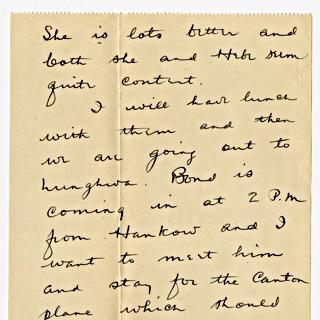 She is lots better and
both she and Hebe seem
quite content.
I will have lunch
with them and then
we are going out to
Lunghwa. Bond is
coming in at 2 P.M
from Hankow and I
want to meet him
and stay for the Canton
plane which should